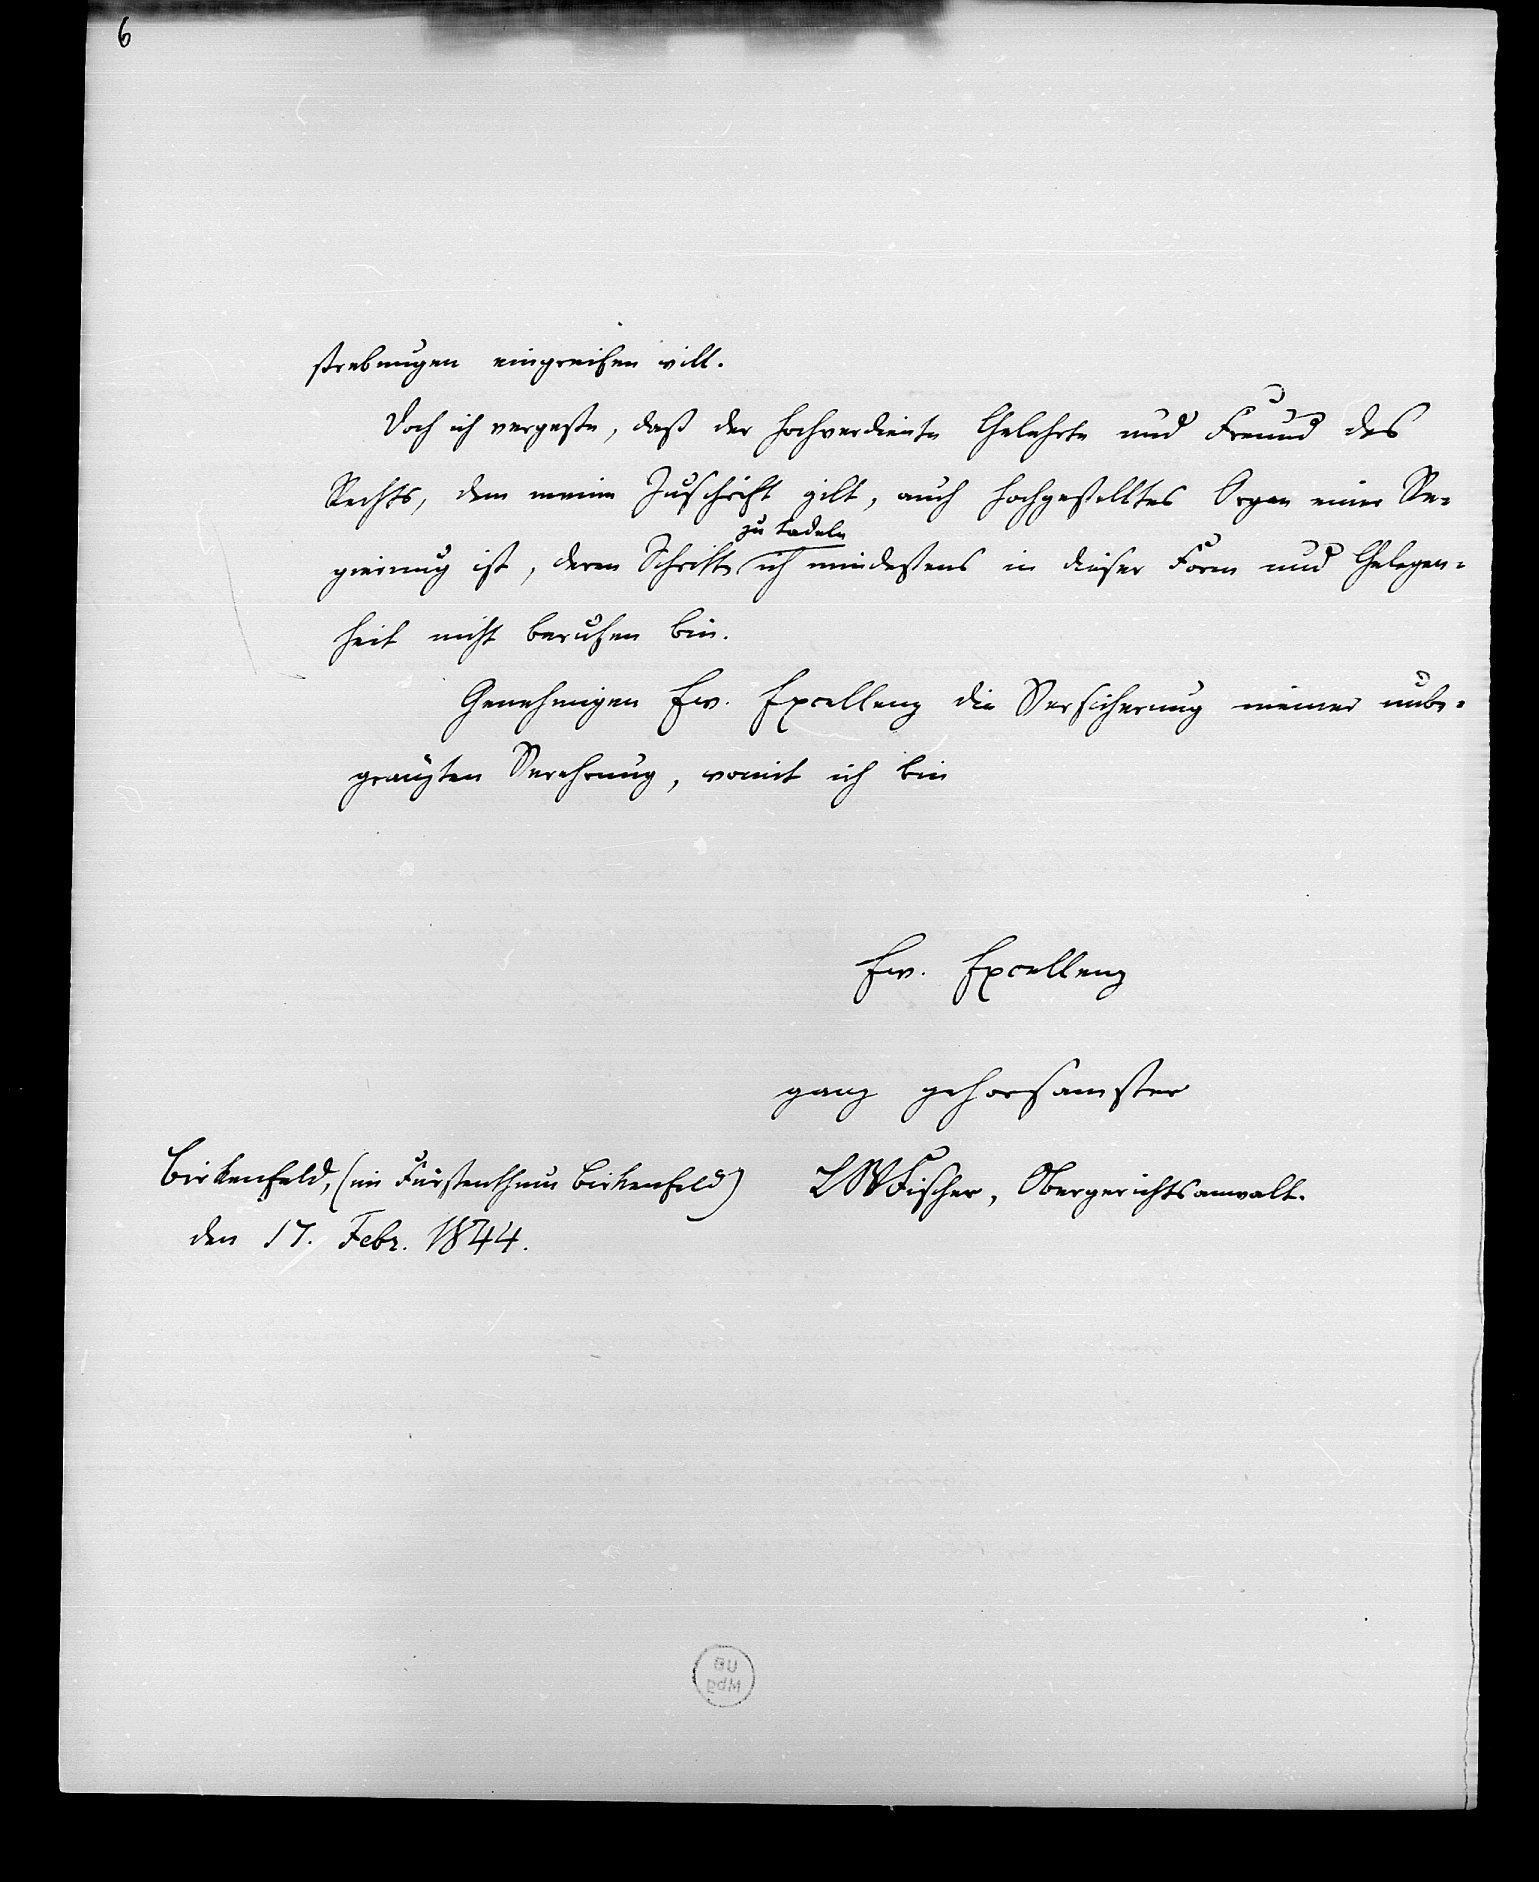 6
strebungen eingreifen will.
Doch ich vergesse, daß der hochverdiente Gelehrte und Freund des
Rechts, dem meine Zuschrift gilt, auch hochgestelltes Organ einer Re-
zu tadeln
gierung ist, deren Schritte ich mindestens in dieser Form und Gelegen-
heit nicht berufen bin.
Genehmigen Ew. Excellenz die Versicherung meiner unbe-
gränzten Verehrung, womit ich bin
Ew. Excellenz
ganz gehorsamster
Birkenfeld, (im Fürstenthum Birkenfeld) LWFischer, Obergerichtsanwalt.
den 17. Febr. 1844.